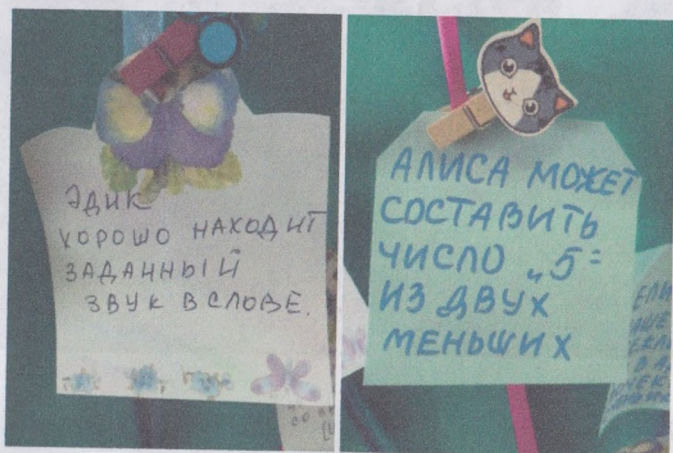 Эдик
хорошо находит
заданный
звук в слове.
АЛИСА МОЖЕТ
СОСТАВИТЬ
ЧИСЛО „5"
ИЗ ДВУХ
МЕНЬШИХ